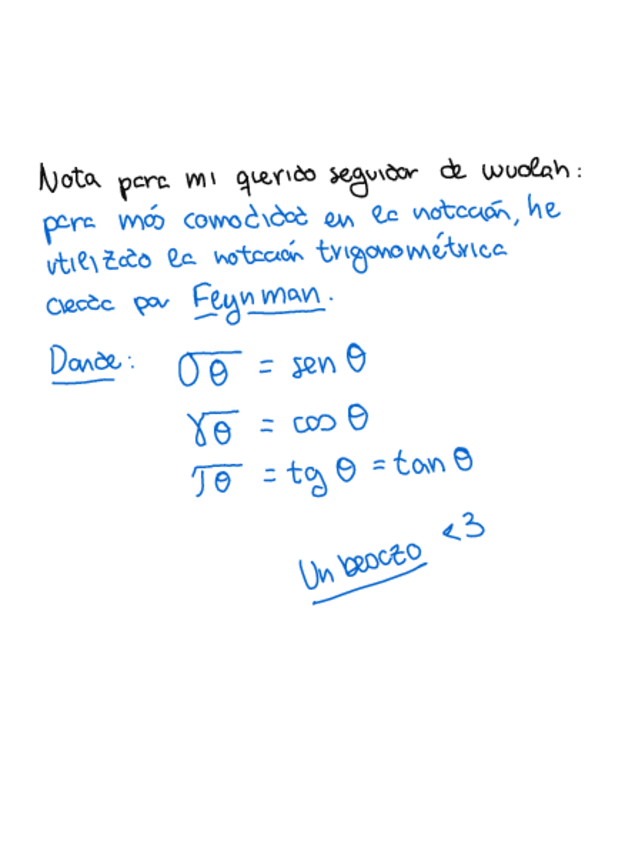 Nota para mi querido seguidor de wuolah:
para más comodidad en la notación, he
utilizado la notación trigonométrica
creada por Feynman.
Donde: σθ = sen θ
γθ = cos θ
τθ = tg θ = tan θ
Un beoczo <3